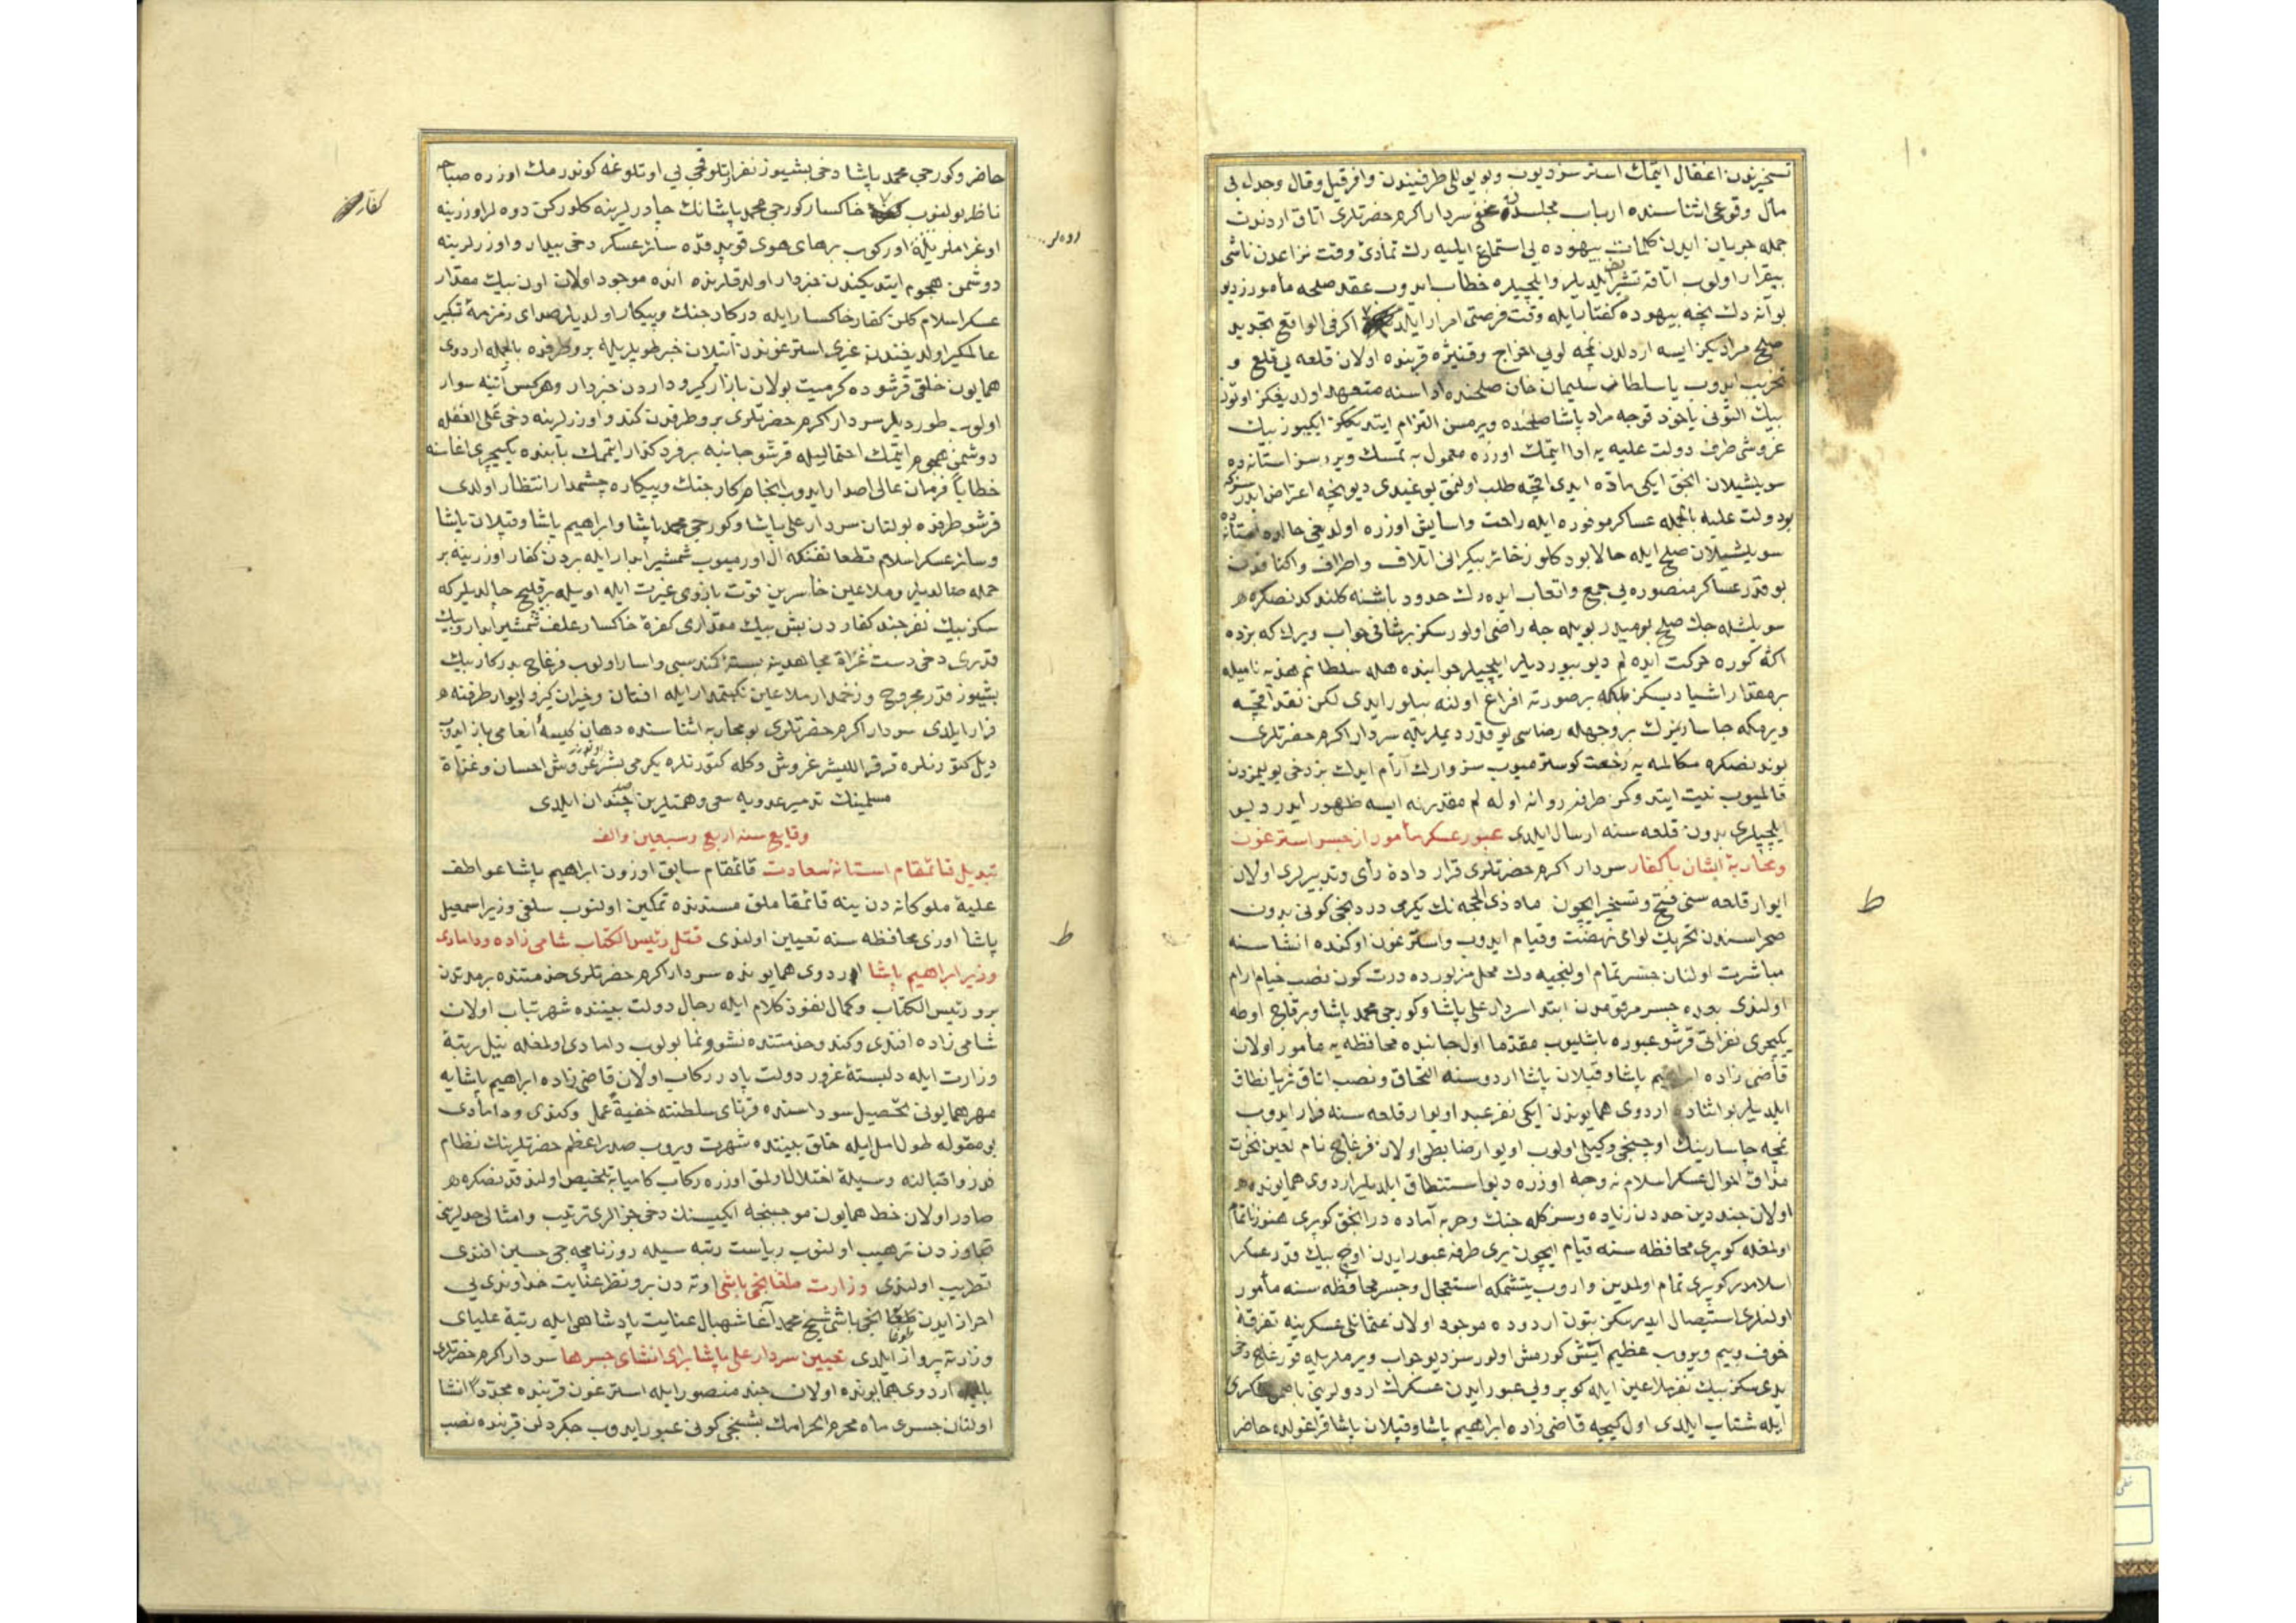 تسخیرندن اغفال ایتمك استر سز دیوب و بو یوللی طرفیندن وافر قیل وقال وجدل بی
مآل وقوعی اثناسنده ارباب مجلسدن مخفی سردار اکرم حضرتلری اتاق اردندن
جمله جریان ایدن کلمات بیهوده یی استماع ایلیه رك تمادئ وقت نزاعدن ناشی
بیقرار اولوب اتاقه تشریف ایلدیلر وایلچیلره خطاب ایدوب عقد صلحه مأمورز دیو
بو آنه دك نجه بیهوده کفتار ایله وقت فرصتی امرار ایلدیکز اکر فی الواقع تجدید
صلح مرادیکز ایسه اردلدن نمچه لویی اخراج وقنیژه قربنده اولان قلعه یی قلع و
تخریب ایدوب یا سلطان سلیمان خان صلحنده اداسنه متعهد اولدیغکز اوتوز
بیك التونی یاخود قوجه مراد پاشا صلحنده ویرمسن التزام ایتدیککز ایکیوز بیك
غروشی طرف دولت علیه یه ادا ایتمك اوزره معمول به تمسك ویررسز استانه ده
سویلشیلان انجق ایکی ماده ایدی اقچه طلب اولنمق یوغیدی دیو نجه اعتراض ایدرسز که
بو دولت علیه بالجمله عساکر موفوره ایله راحت واسایش اوزره اولدیغی حالده استانه ده
سویلشیلان صلح ایله حالا بو دکلو ذخائر بیکرانی اتلاف واطراف واکنافدن
بو قدر عساکر منصوره یی جمع واتعاب ایده رك حدود باشنه کلندکدنصکره
سویلشله جك صلح بومیدر بویله جه راضی اولورسکز بر شافی جواب ویرك که بزده
اکا کوره حرکت ایده لم دیو بیوردیلر ایلچیلر جوابنده هله سلطانم هدیه نامیله
بر مقدار اشیا دیسکز بلکه بر صورته افراغ اولنه بیلور ایدی لکن نقد اقچه
ویرمکه چاساریمزك بر وجهله رضاسی یوقدر دیملریله سردار اکرم حضرتلری
بوندنصکره مکالمه یه رخصت کوسترمیوب سز وارك آرام ایدك بز دخی یولیمزدن
قالمیوب نیت ایتدوکمز طرفه روانه اوله لم مقدر نه ایسه ظهور ایدر دیو
ایلچیلری بدون قلعه سنه ارسال ایلدی عبور عسکر مأمور از جسر استرغون
ومحاربۀ ایشان با کفار سردار اکرم حضرتلری قرار دادۀ رأی وتدبیرلری اولان
ایوار قلعه سنی فتح وتسخیر ایچون ماه ذی الحجه نك یکرمی دردنجی کونی بدون
صحراسندن تحریك لوای نهضت وقیام ایدوب واسترغون اوکنده انشاسنه
مباشرت اولنان جسر تمام اولنجیه دك محل مزبورده درت کون نصب خیام ارام
اولندی بعده جسر مرقومدن ابتدا سردار علی پاشا وکورجی محمد پاشا وبر قاچ اوطه
یکیچری نفراتی قرشو عبوره باشلیوب مقدما اول جانبده محافظه یه مأمور اولان
قاضی زاده ابراهیم پاشا وقپلان پاشا اردوسنه التحاق ونصب اتاق ثریا نطاق
ایلدیلر بو اثناده اردوی همایوندن ایکی نفر عبد اویوار قلعه سنه فرار ایدوب
نمچه چاسارینك اوچنجی وکیلی اولوب اویوار ضابطی اولان فرغاچ نام لعین نخوت
مذاق احوال عسکر اسلام نه وجه اوزره دیو استنطاق ایلدیلر اردوی همایونده
اولان جنددین حددن زیاده وسزکله جنك وحربه آماده در انجق کوپری هنوز ناتمام
اولمغله کوپری محافظه سنه قیام ایچون بری طرفه عبور ایدن اوچ بیك قدر عسکر
اسلامدر کوپری تمام اولمدین واروب یتشمکه استعجال وجسر محافظه سنه مأمور
اولنلری استیصال ایدرسکز بتون اردوده موجود اولان عثمانلی عسکرینه تفرقۀ
خوف وبیم ویروب عظیم ایش کورمش اولورسز دیو جواب ویرملریله فورغاچ دخی
یدی سکز بیك نفر ملاعین ایله کوپرویی عبور ایدن عسکرك اردولرینی باصمق فکری
ایله شتاب ایلدی اول کیجه قاضی زاده ابراهیم پاشا وقپلان پاشا قراغولده حاضر
ط
حاضر وکورجی محمد پاشا دخی بشیوز نفر اتلو قچی یی اوتلوغه کوندرمك اوزره صباحه
ناظر بولنوب خاکسار کورجی محمد پاشانك چادرلرینه کلورکن دوه لر اوزرینه
اوغراملریله اورکوب برهای هوی قوپدقده سائر عسکر دخی بیدار واوزرلرینه
دوشمن هجوم ایتدیکندن خبردار اولدقلرنده انده موجود اولان اون بیك مقدار
عسکر اسلام کلن کفار خاکسار ایله درکار جنك وپیکار اولدیلر صدای زمزمۀ تکبیر
عالمکیر اولدیغندن غیری استرغوندن اتیلان خبر طوپلریله برو طرفده بالجمله اردوی
همایون خلقی قرشوده کرمیت بولان بازار کیروداردن خبردار وهرکس آتینه سوار
اولوب طوردیلر سردار اکرم حضرتلری برو طرفدن کندو اوزرلرینه دخی علی الغفله
دوشمن هجوم ایتمك احتمالیله قرشو جانبه بر فرد کذار ایتممك بابنده یکیچری اغاسنه
خطاباً فرمان عالی اصدار ایدوب انجام کار جنك وپیکاره چشمدار انتظار اولدی
قرشو طرفده بولنان سردار علی پاشا وکورجی محمد پاشا وابراهیم پاشا وقپلان پاشا
وسائر عسکر اسلام قطعا تفنکه ال اورمیوب شمشیر ابدار ایله بردن کفار اوزرینه بر
حمله صالدیلر وملاعین خاسرین قوت بازوی غیرت ایله اویله بر قلیج چالدیلر که
سکز بیك نفر جند کفاردن بش بیك مقداری کفرۀ خاکسار علف شمشیر ابدار وبیك
قدری دخی دست غزاة مجاهدینه بستۀ کمند سبی واسار اولوب فرغاچ بدرکار بیك
بشیوز قدر مجروح وزخمدار ملاعین نکبتمدار ایله افتان وخیزان کیرو ایوار طرفنه
فرار ایلدی سردار اکرم حضرتلری بو محاربه اثناسنده دهان کیسۀ انعامی باز ایدوب
دیل کتورنلره قرقر اللیشر غروش وکله کتورنلره یکرمی بشر غروش احسان وغزاة
مسلمینك تدمیر عدویه سعی وهمتلرین صد چندان ایلدی
وقایع سنه اربع وسبعین والف
تبدیل قائمقام استانۀ سعادت قائمقام سابق اوزون ابراهیم پاشا عواطف
علیۀ ملوکانه دن ینه قائمقاملق مسندنده تمکین اولنوب سلفی وزیر اسمعیل
پاشا اوزی محافظه سنه تعیین اولندی قتل رئیس الکتاب شامی زاده ودامادی
وزیر ابراهیم پاشا اردوی همایونده سردار اکرم حضرتلری خدمتنده بر مدتدن
برو رئیس الکتاب وکمال نفوذ کلام ایله رجال دولت بیننده شهرتیاب اولان
شامی زاده افندی وکندو خدمتنده نشو ونما بولوب دامادی اولمغله نیل رتبۀ
وزارت ایله دلبستۀ غرور دولت پادر رکاب اولان قاضی زاده ابراهیم پاشایه
مهر همایونی تحصیل سوداسنده قرنای سلطنته خفیةً عمل وکندی ودامادی
بو مقوله طول امل ایله خلق بیننده شهرت ویروب صدر اعظم حضرتلرینك نظام
فر واقبالنه وسیلۀ اختلال اولمق اوزره رکاب کامیابه تلخیص اولندقدنصکره
صادر اولان خط همایون موجبنجه ایکیسنك دخی جزالری ترتیب وامثالی حدلرینی
تجاوزدن ترهیب اولنوب ریاست رتبه سیله روزنامچه جی حسین افندی
تطریب اولندی وزارت طغانجی باشی اوته دن برو نظر عنایت خداوندی یی
احراز ایدن طغانجی باشی شیخ محمد آغا شهبال عنایت پادشاهی ایله رتبۀ علیای
وزارته پرواز ایلدی تعیین سردار علی پاشا برای انشای جسرها سردار اکرم حضرتلری
بالجمله اردوی همایونده اولان جند منصور ایله استرغون قربنده مجدداً انشا
اولنان جسری ماه محرم الحرامك بشنجی کونی عبور ایدوب جکردلن قربنده نصب
کفار
دوه لر
ط